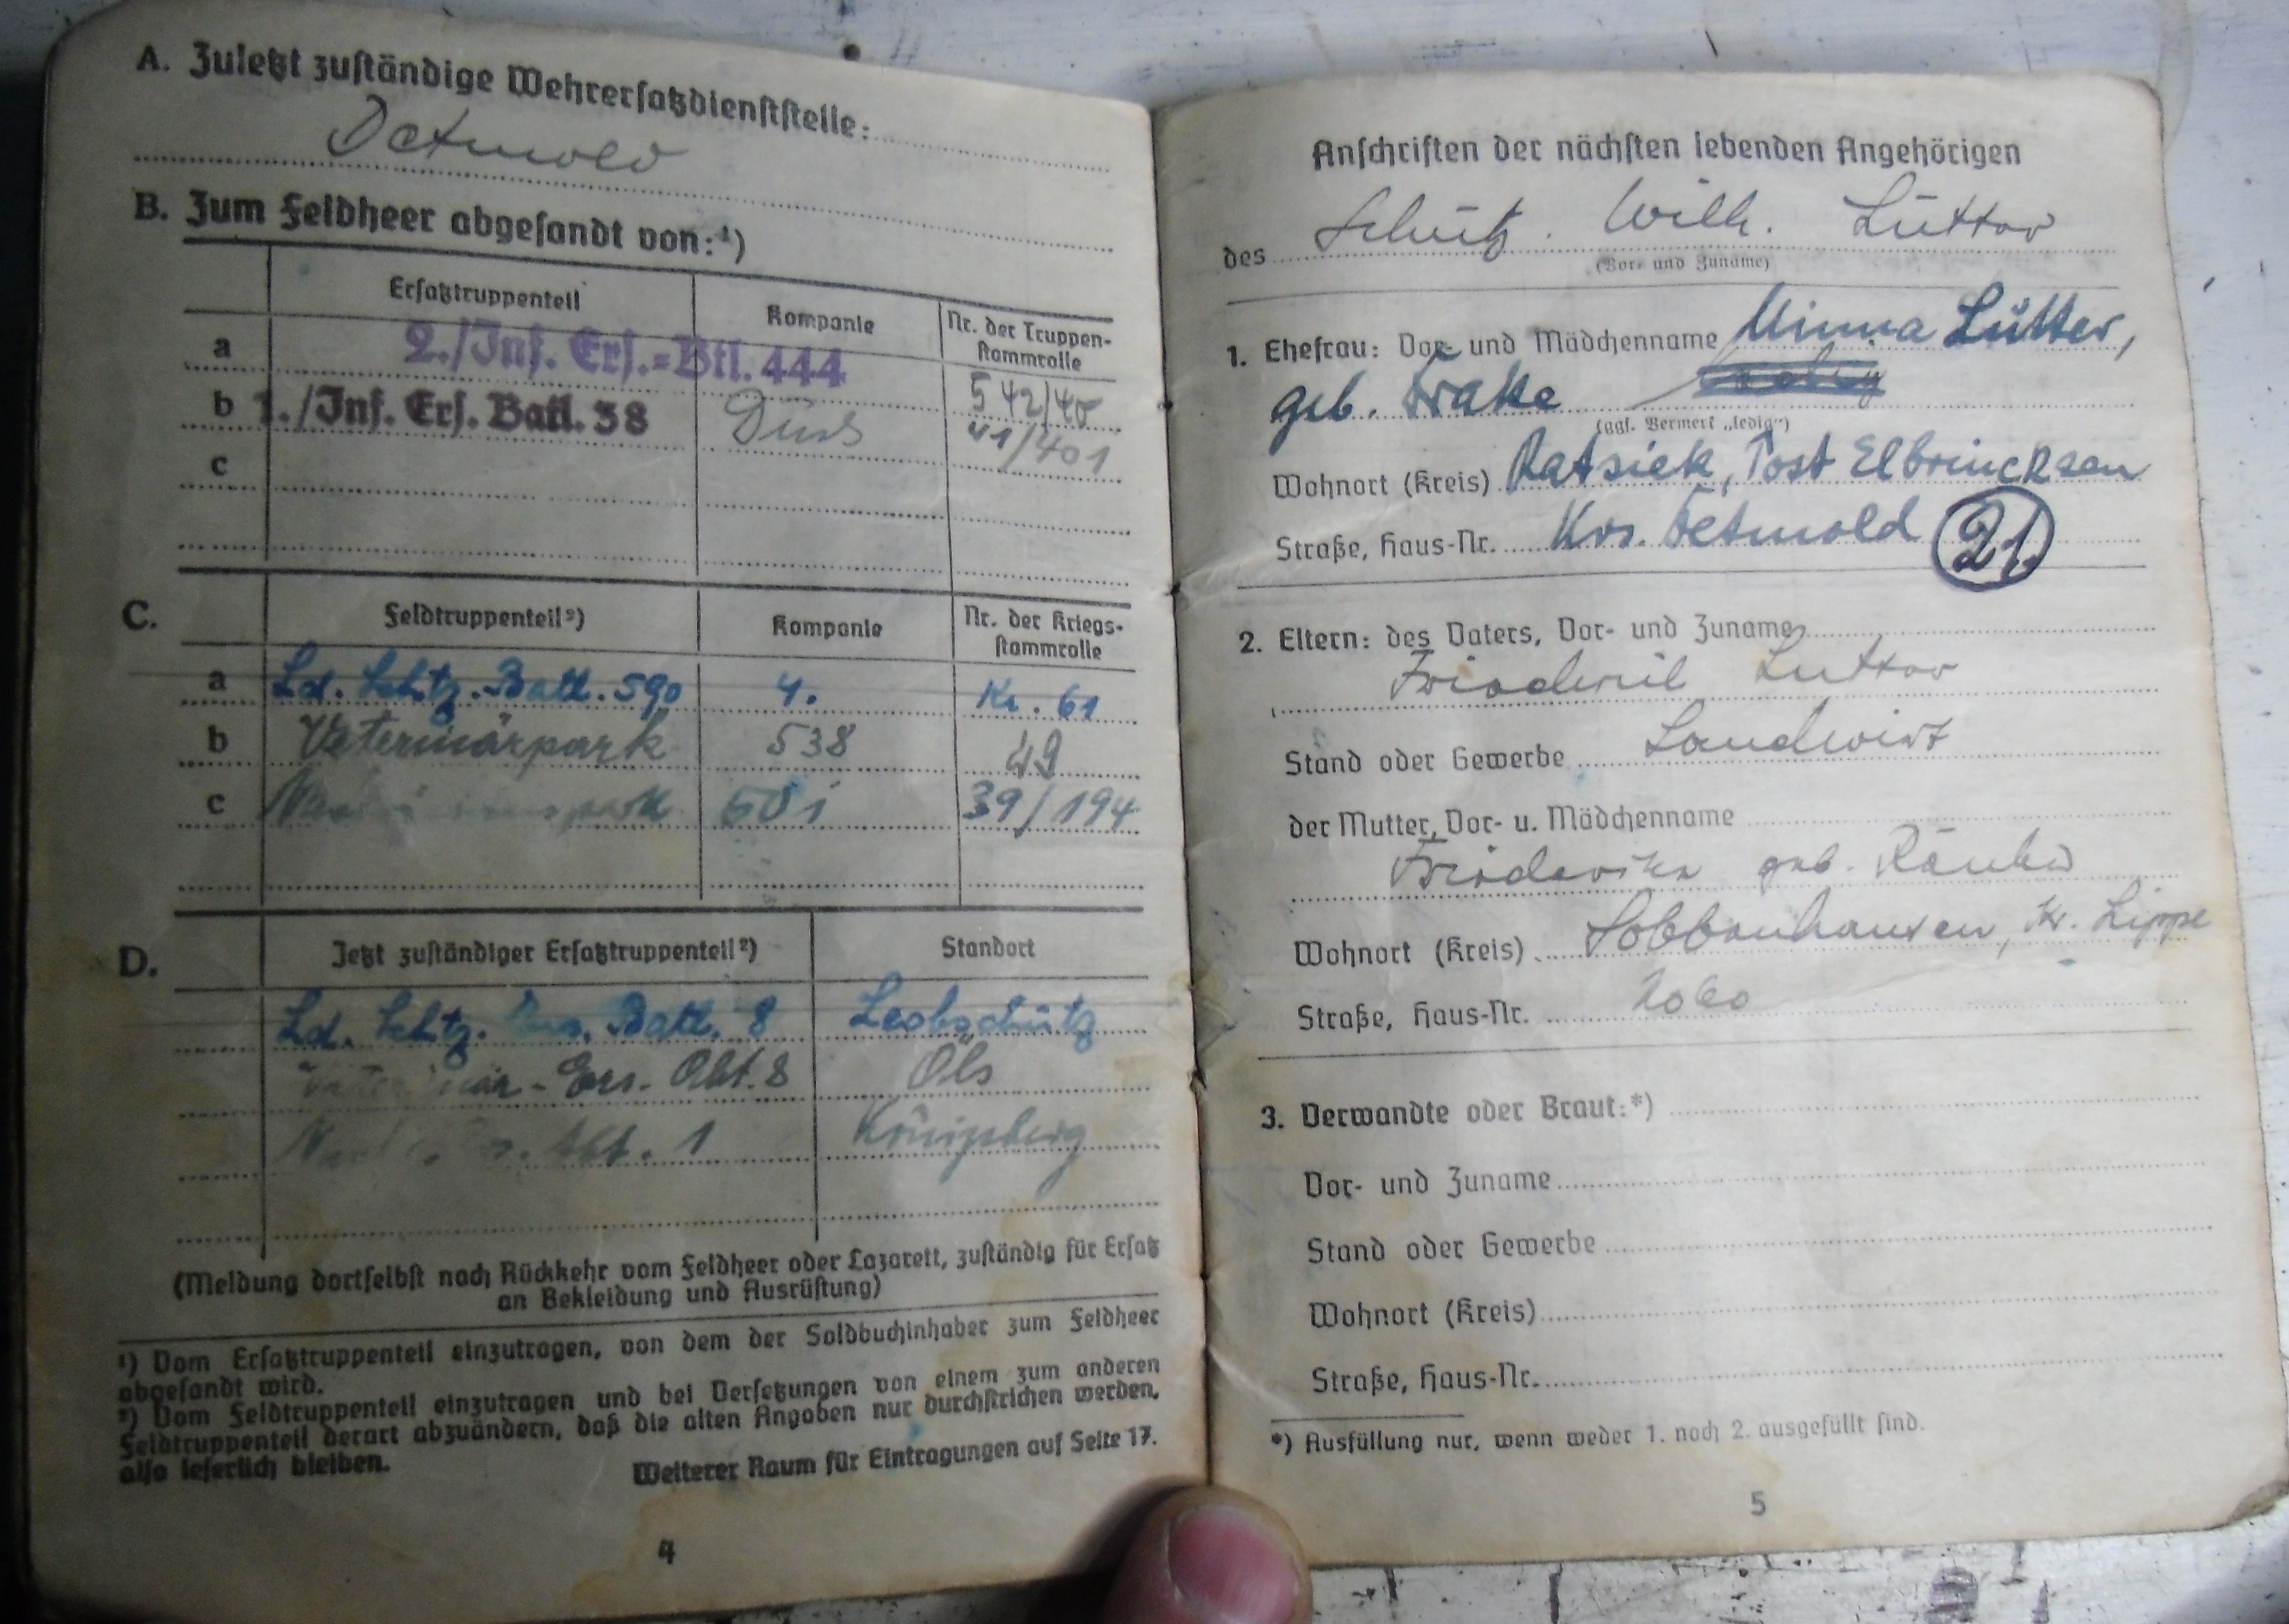 A. Zuletzt zuständige Wehrersatzdienststelle:
Detmold
B. Zum Feldheer abgesandt von:¹)
Ersatztruppenteil Kompanie Nr. der Truppen-
stammrolle
a 2./Inf. Ers.=Btl. 444 542/40
b 1./Inf. Ers. Batl. 58 41/401
c
C. Feldtruppenteil²) Kompanie Nr. der Kriegs-
stammrolle
a Ld. Schtz. Batl. 590 4. Kr. 61
b Veterinärpark 538 49
c 39/194
D. Jetzt zuständiger Ersatztruppenteil²) Standort
Ld. Schtz. Ers. Batl. 8 Leobschütz
Veterinär-Ers. Abt. 8 Öls
Abt. 1 Königsberg
(Meldung dortselbst nach Rückkehr vom Feldheer oder Lazarett, zuständig für Ersatz
an Bekleidung und Ausrüstung)
¹) Vom Ersatztruppenteil einzutragen, von dem der Soldbuchinhaber zum Feldheer
abgesandt wird.
²) Vom Feldtruppenteil einzutragen und bei Versetzungen von einem zum anderen
Feldtruppenteil derart abzuändern, daß die alten Angaben nur durchstrichen werden,
also leserlich bleiben.
Weiterer Raum für Eintragungen auf Seite 17.
4
Anschriften der nächsten lebenden Angehörigen
des Schütz. Wilh. Lütter
(Vor- und Zuname)
1. Ehefrau: Vor- und Mädchenname Minna Lütter,
geb. Brake
(ggf. Vermerk „ledig“)
Wohnort (Kreis) Ratsiek, Post Elbrincksen
Straße, Haus-Nr. Krs. Detmold 21
2. Eltern: des Vaters, Vor- und Zuname
Friederich Lütter
Stand oder Gewerbe Landwirt
der Mutter, Vor- u. Mädchenname
Friederike geb.
Wohnort (Kreis) Sabbenhausen, Kr. Lippe
Straße, Haus-Nr.
3. Verwandte oder Braut:*)
Vor- und Zuname
Stand oder Gewerbe
Wohnort (Kreis)
Straße, Haus-Nr.
*) Ausfüllung nur, wenn weder 1. noch 2. ausgefüllt sind.
5